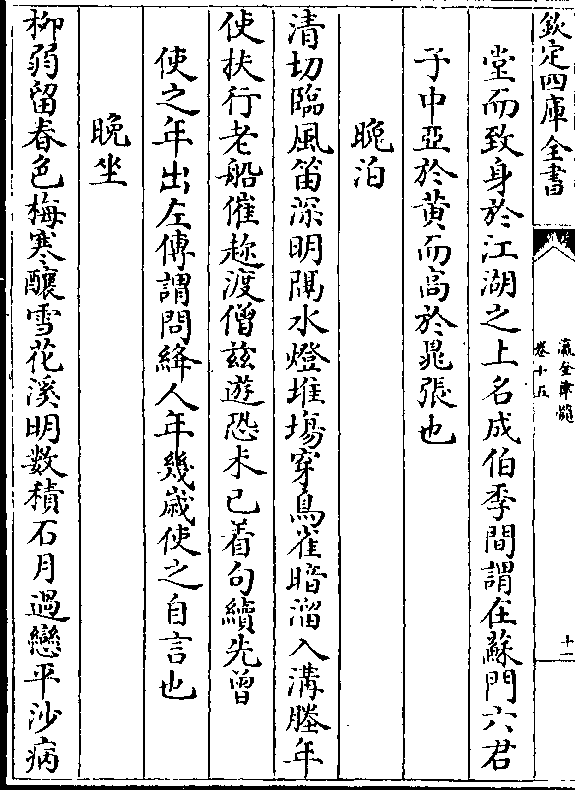 欽定四庫全書
瀛奎律髓
卷十五
十一
堂而致身於江湖之上名成伯季間謂在蘇門六君
子中亞於黄而高於晁張也
晚泊
清切臨風笛深明隔水燈堆場穿鳥雀暗溜入溝塍年
使扶行老船催趂渡僧兹遊恐未已着句續先曾
使之年出左傳謂問絳人年幾歲使之自言也
晚坐
柳弱留春色梅寒釀雪花溪明数積石月過戀平沙病